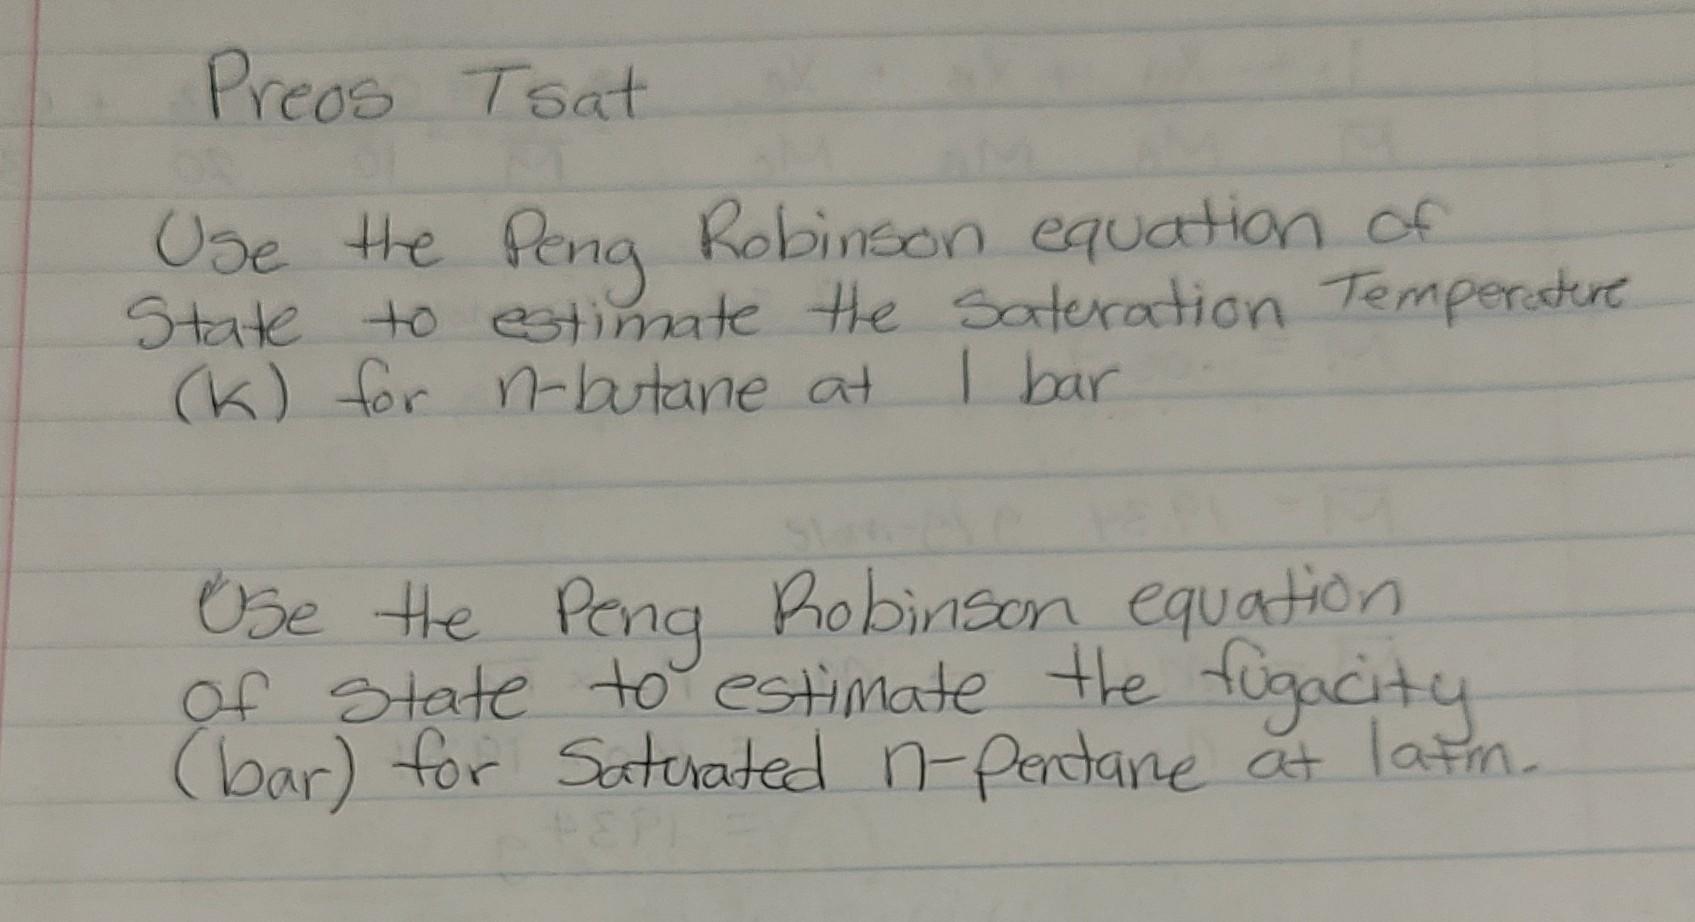 Preos Tsat
Use the Peng Robinson equation of
State to estimate the Sateration Temperature
(K) for n-butane at 1 bar
Use the Peng Robinson equation
of state to estimate the fugacity
(bar) for Saturated n-Pentane at 1atm.